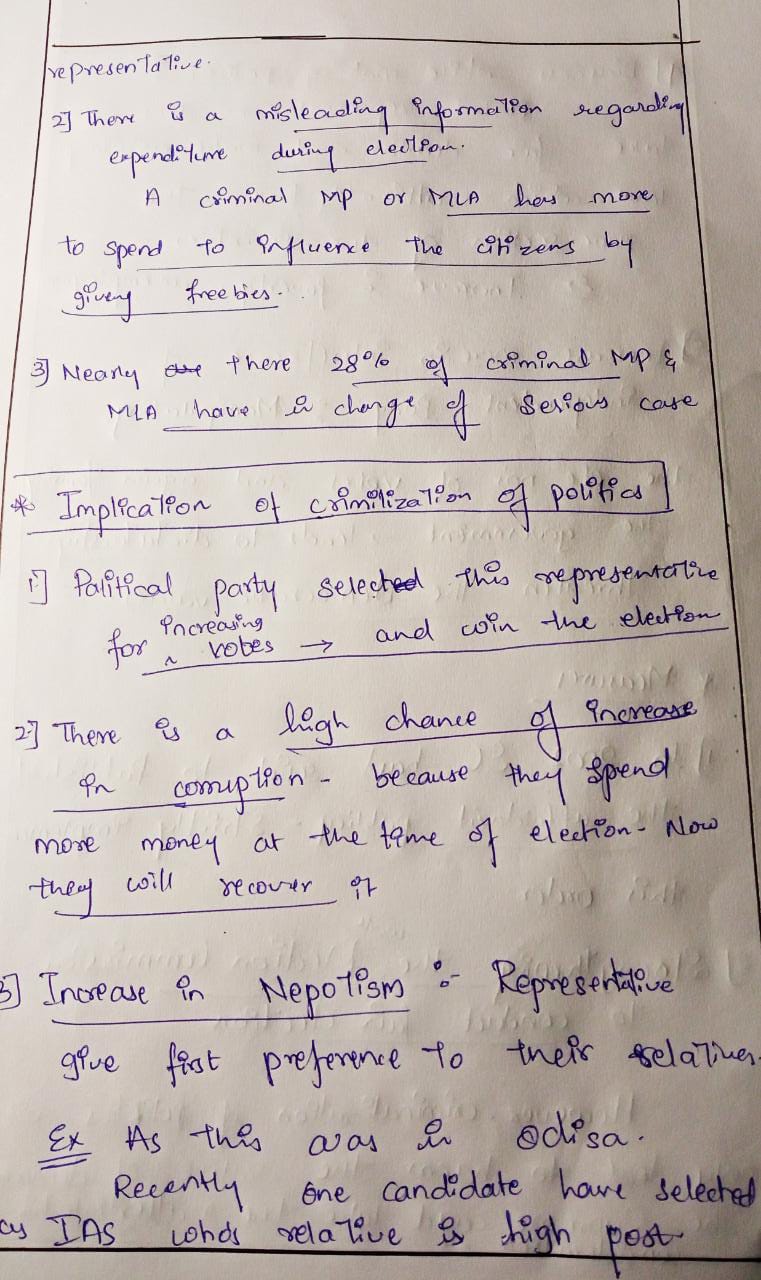 representative.
2] There is a misleading information regarding
expenditure during election.
A criminal MP or MLA has more
to spend to influence the citizens by
giving freebies.
3] Nearly there 28% of criminal MP &
MLA have in charge of Serious case
* Implication of crimilization of politics
1.] Political party selected this representative
increasing
for ^ votes → and win the election
2.] There is a high chance of increase
in corruption - because they spend
more money at the time of election - Now
they will recover it
3] Increase in Nepotism :- Representative
give first preference to their relatives.
Ex As this was in Odisa.
Recently one candidate have selected
as IAS whos relative is high post